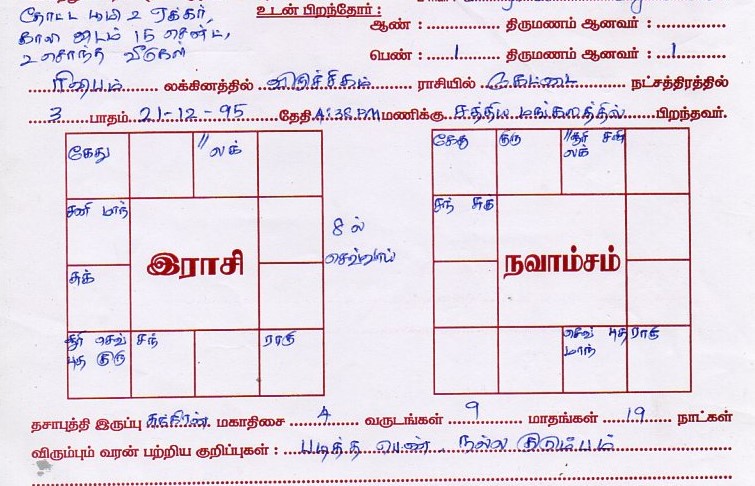 தோட்ட பூமி 2 ஏக்கர்,
காலி இடம் 15 சென்ட்,
2 சொந்த வீடுகள்
உடன் பிறந்தோர் :
ஆண் : திருமணம் ஆனவர் :
பெண் : 1 திருமணம் ஆனவர் : 1
ரிஷபம் லக்கினத்தில் விருச்சிகம் ராசியில் கேட்டை நட்சத்திரத்தில்
3 பாதம் 21-12-95 தேதி 4:38 PM மணிக்கு சத்திய மங்கலத்தில் பிறந்தவர்.
கேது // லக்
சனி மாந்
சுக்
சூரி செவ் புத குரு
சந்
ராகு
இராசி
8 ல்
செவ்வாய்
கேது குரு // சூரி சனி லக்
சந் சுக்
நவாம்சம்
செவ் புத மாந்
ராகு
தசாபுத்தி இருப்பு மகாதிசை 4 வருடங்கள் 9 மாதங்கள் 19 நாட்கள்
விரும்பும் வரன் பற்றிய குறிப்புகள் : படித்த பெண், நல்ல குடும்பம்